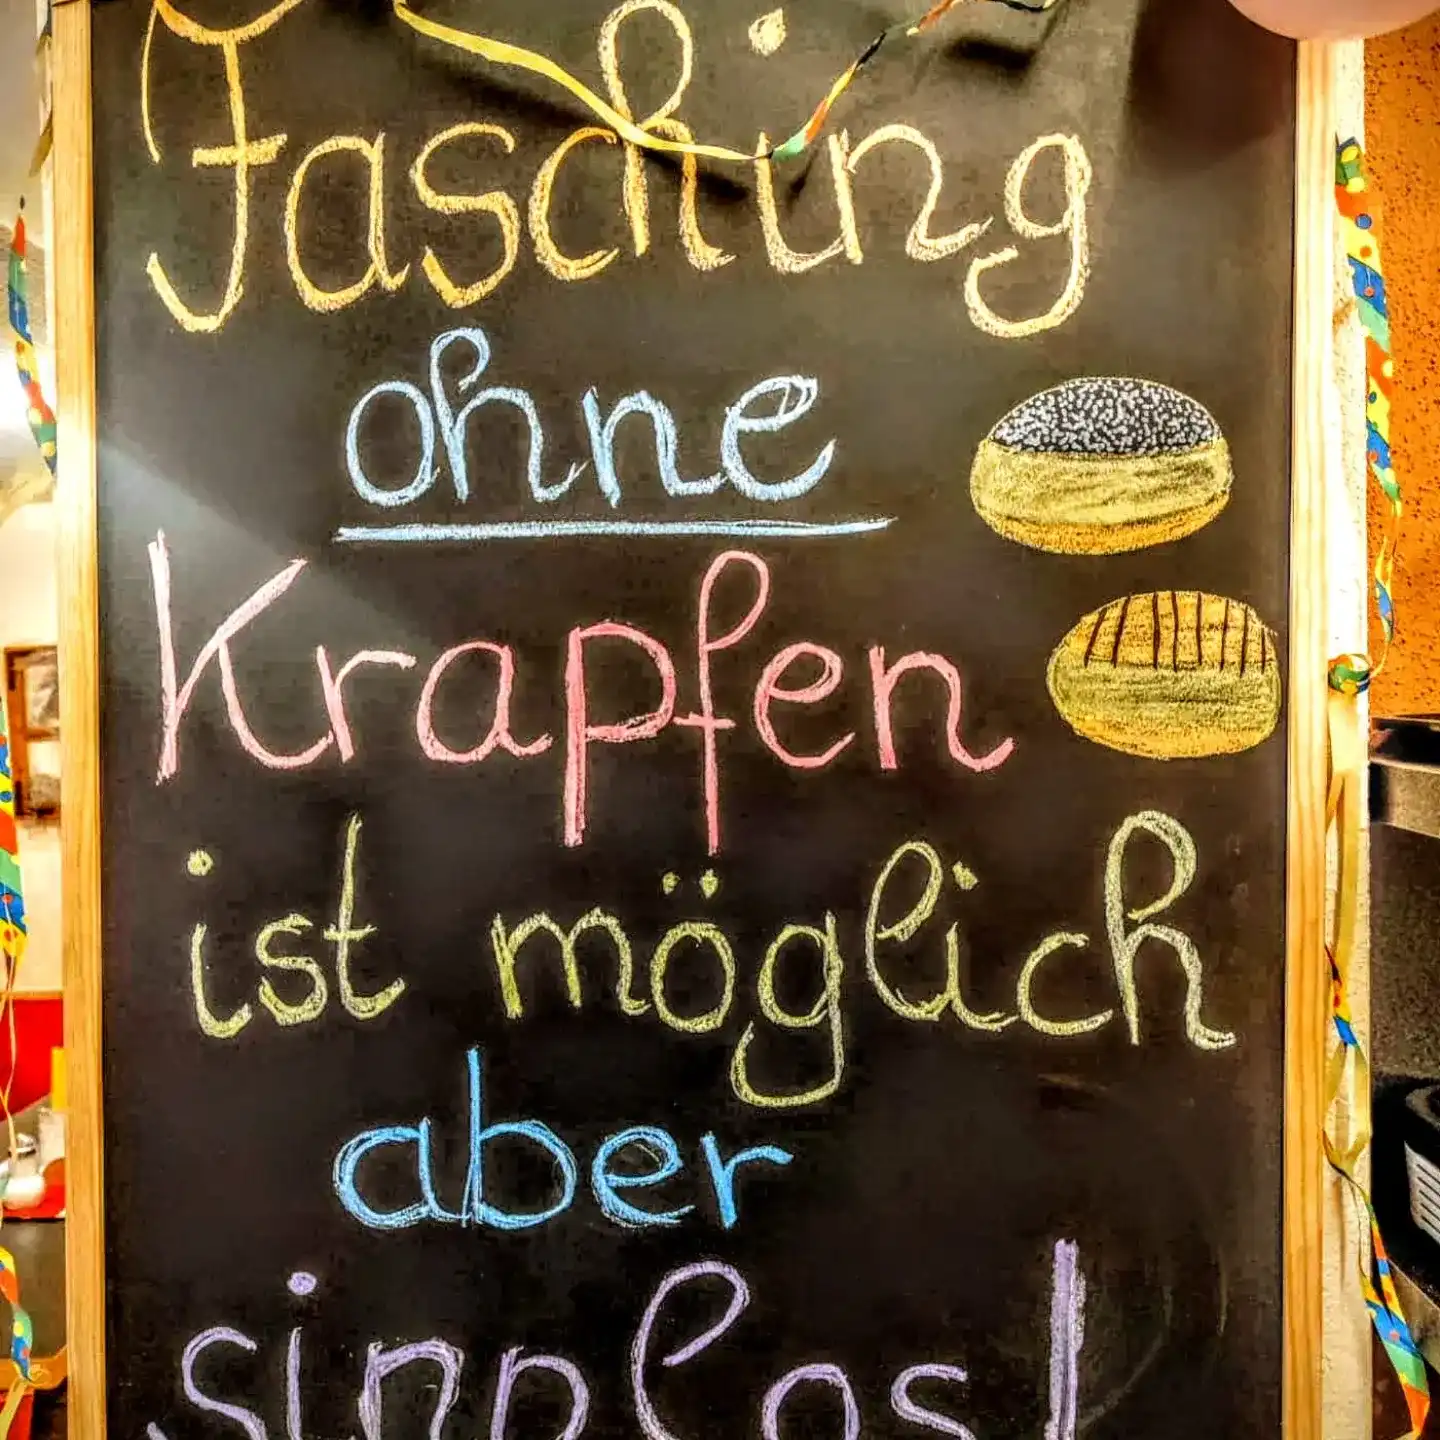 Fasching
ohne
Krapfen
ist möglich
aber
sinnlos!